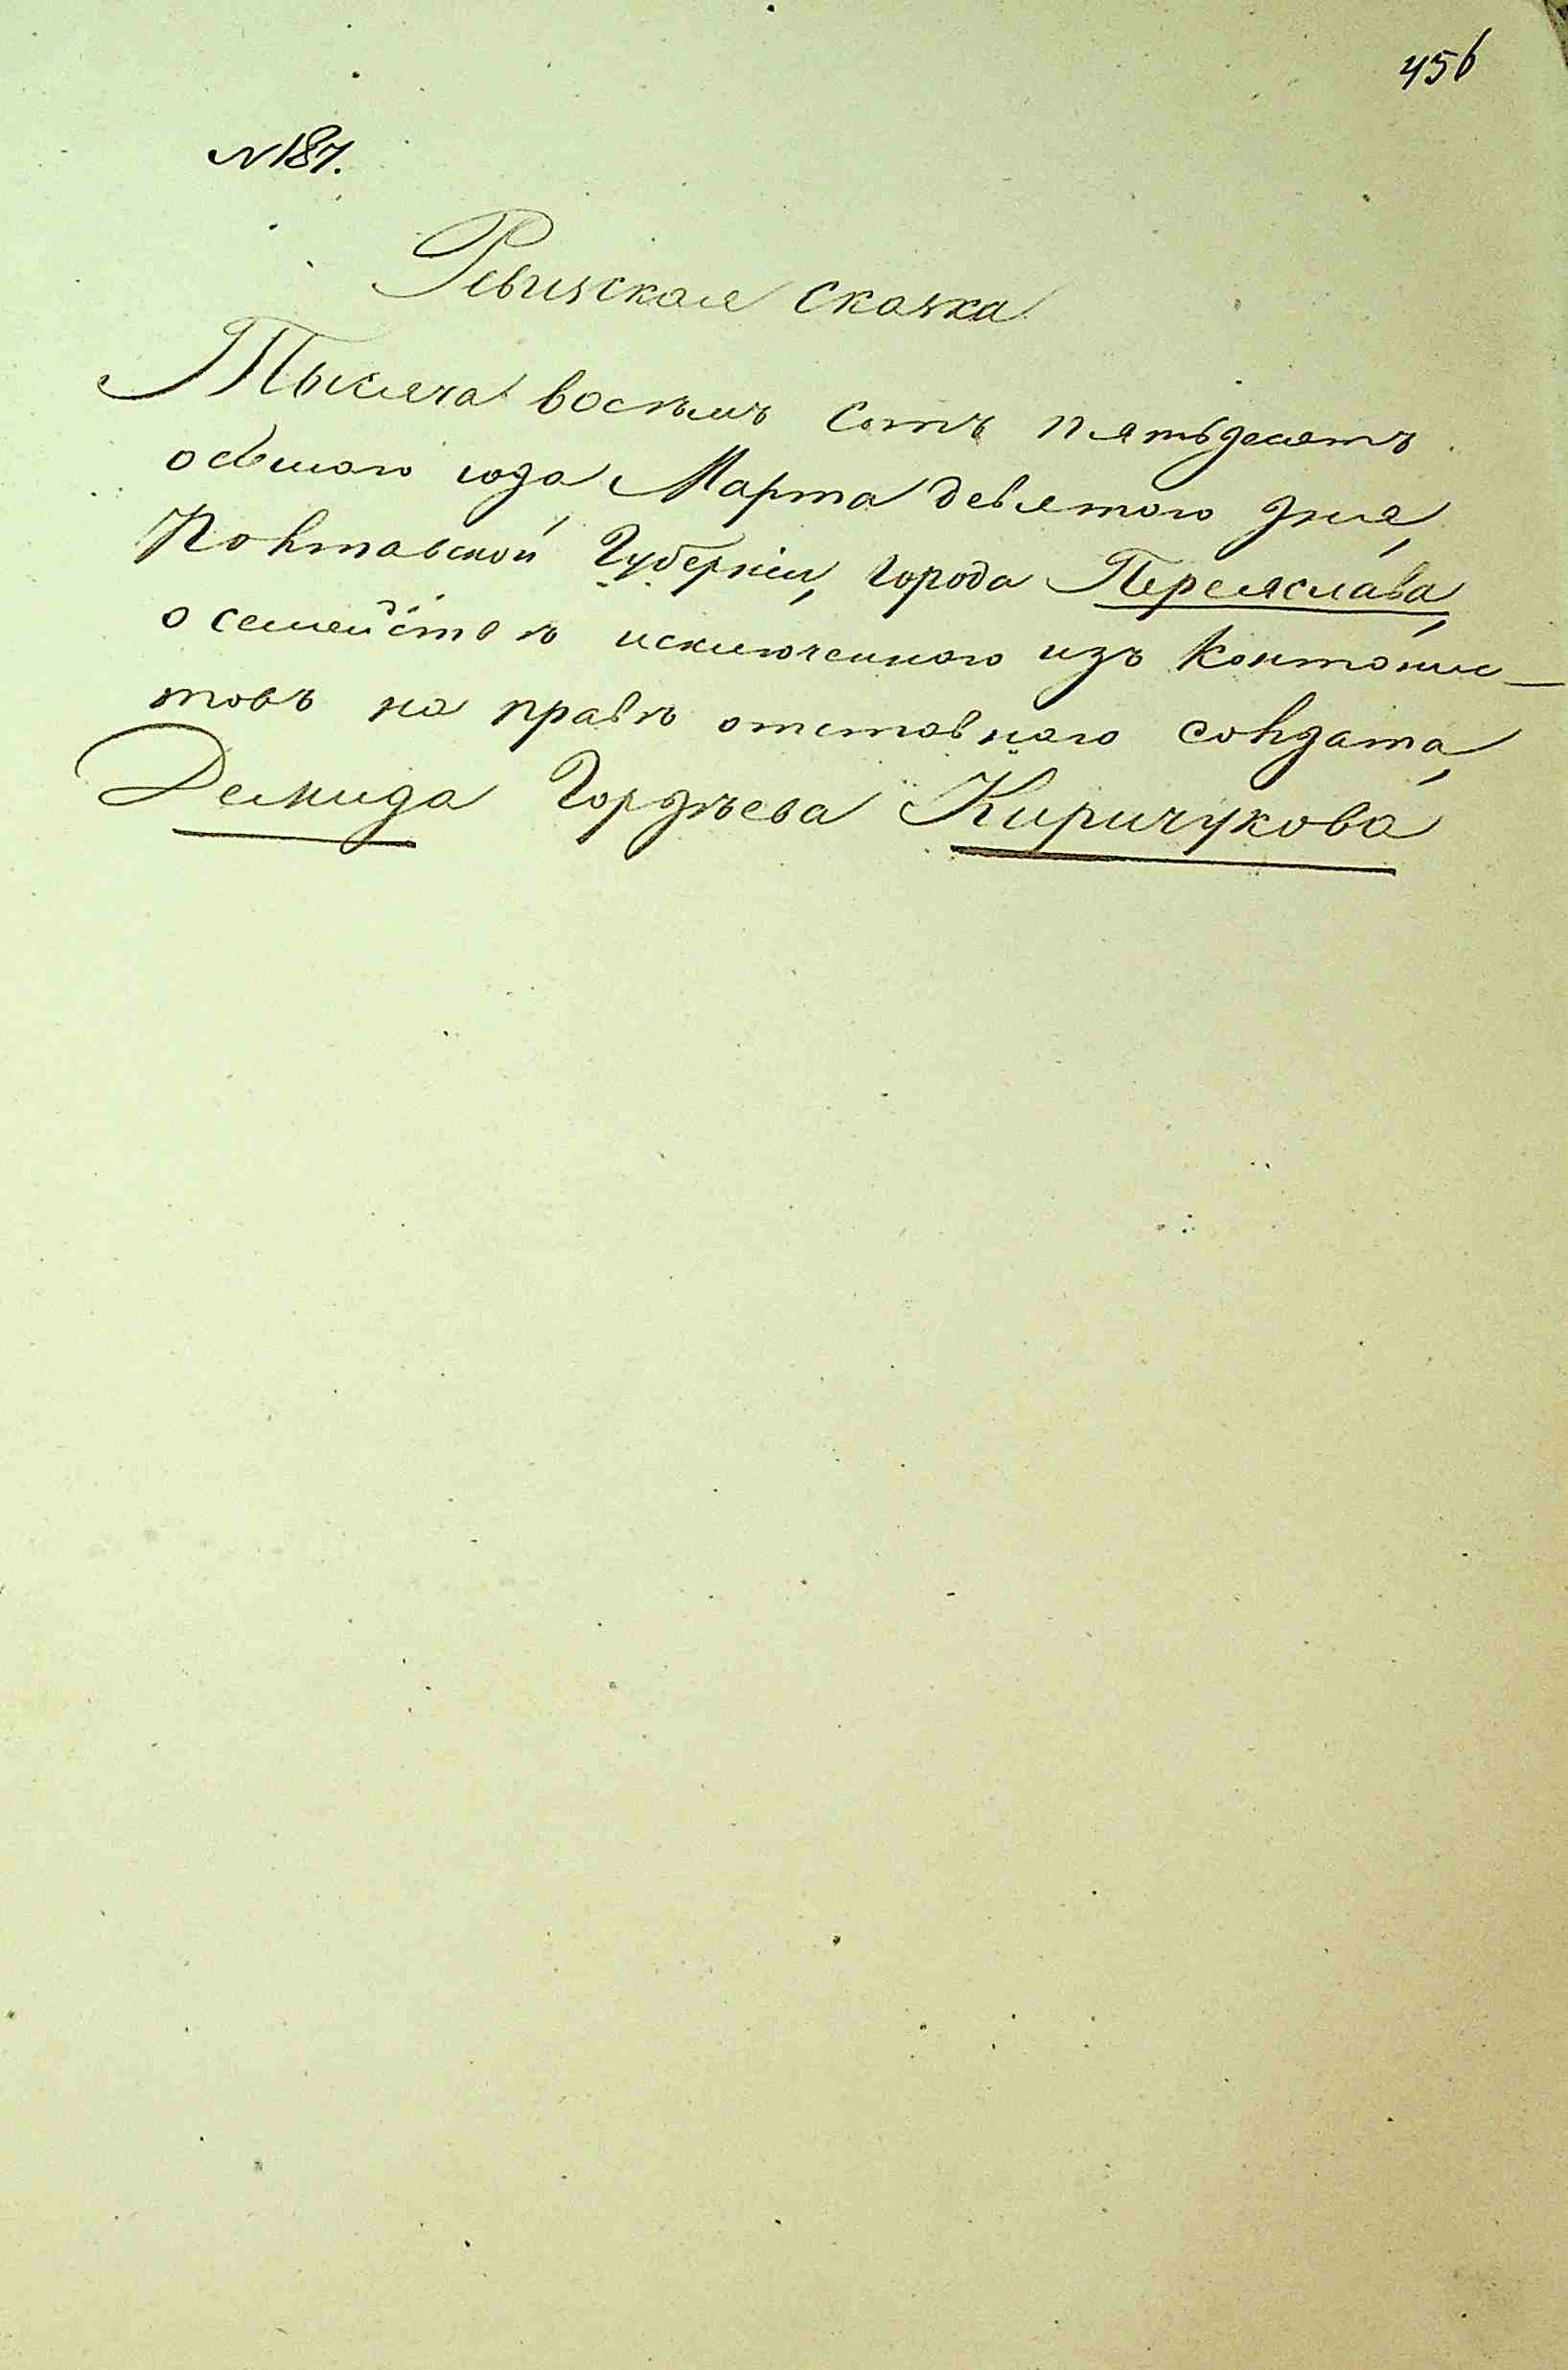 456
N 187.
Ревизская сказка
Тысяча восѣмъ сотъ пятьдесятъ
осьмаго года Марта девятаго дня,
Полтавской Губерніи, города Переяслава,
о семействѣ исключеннаго изъ Контонис-
товъ на правѣ отставнаго солдата,
Демида Гордѣева Киричукова